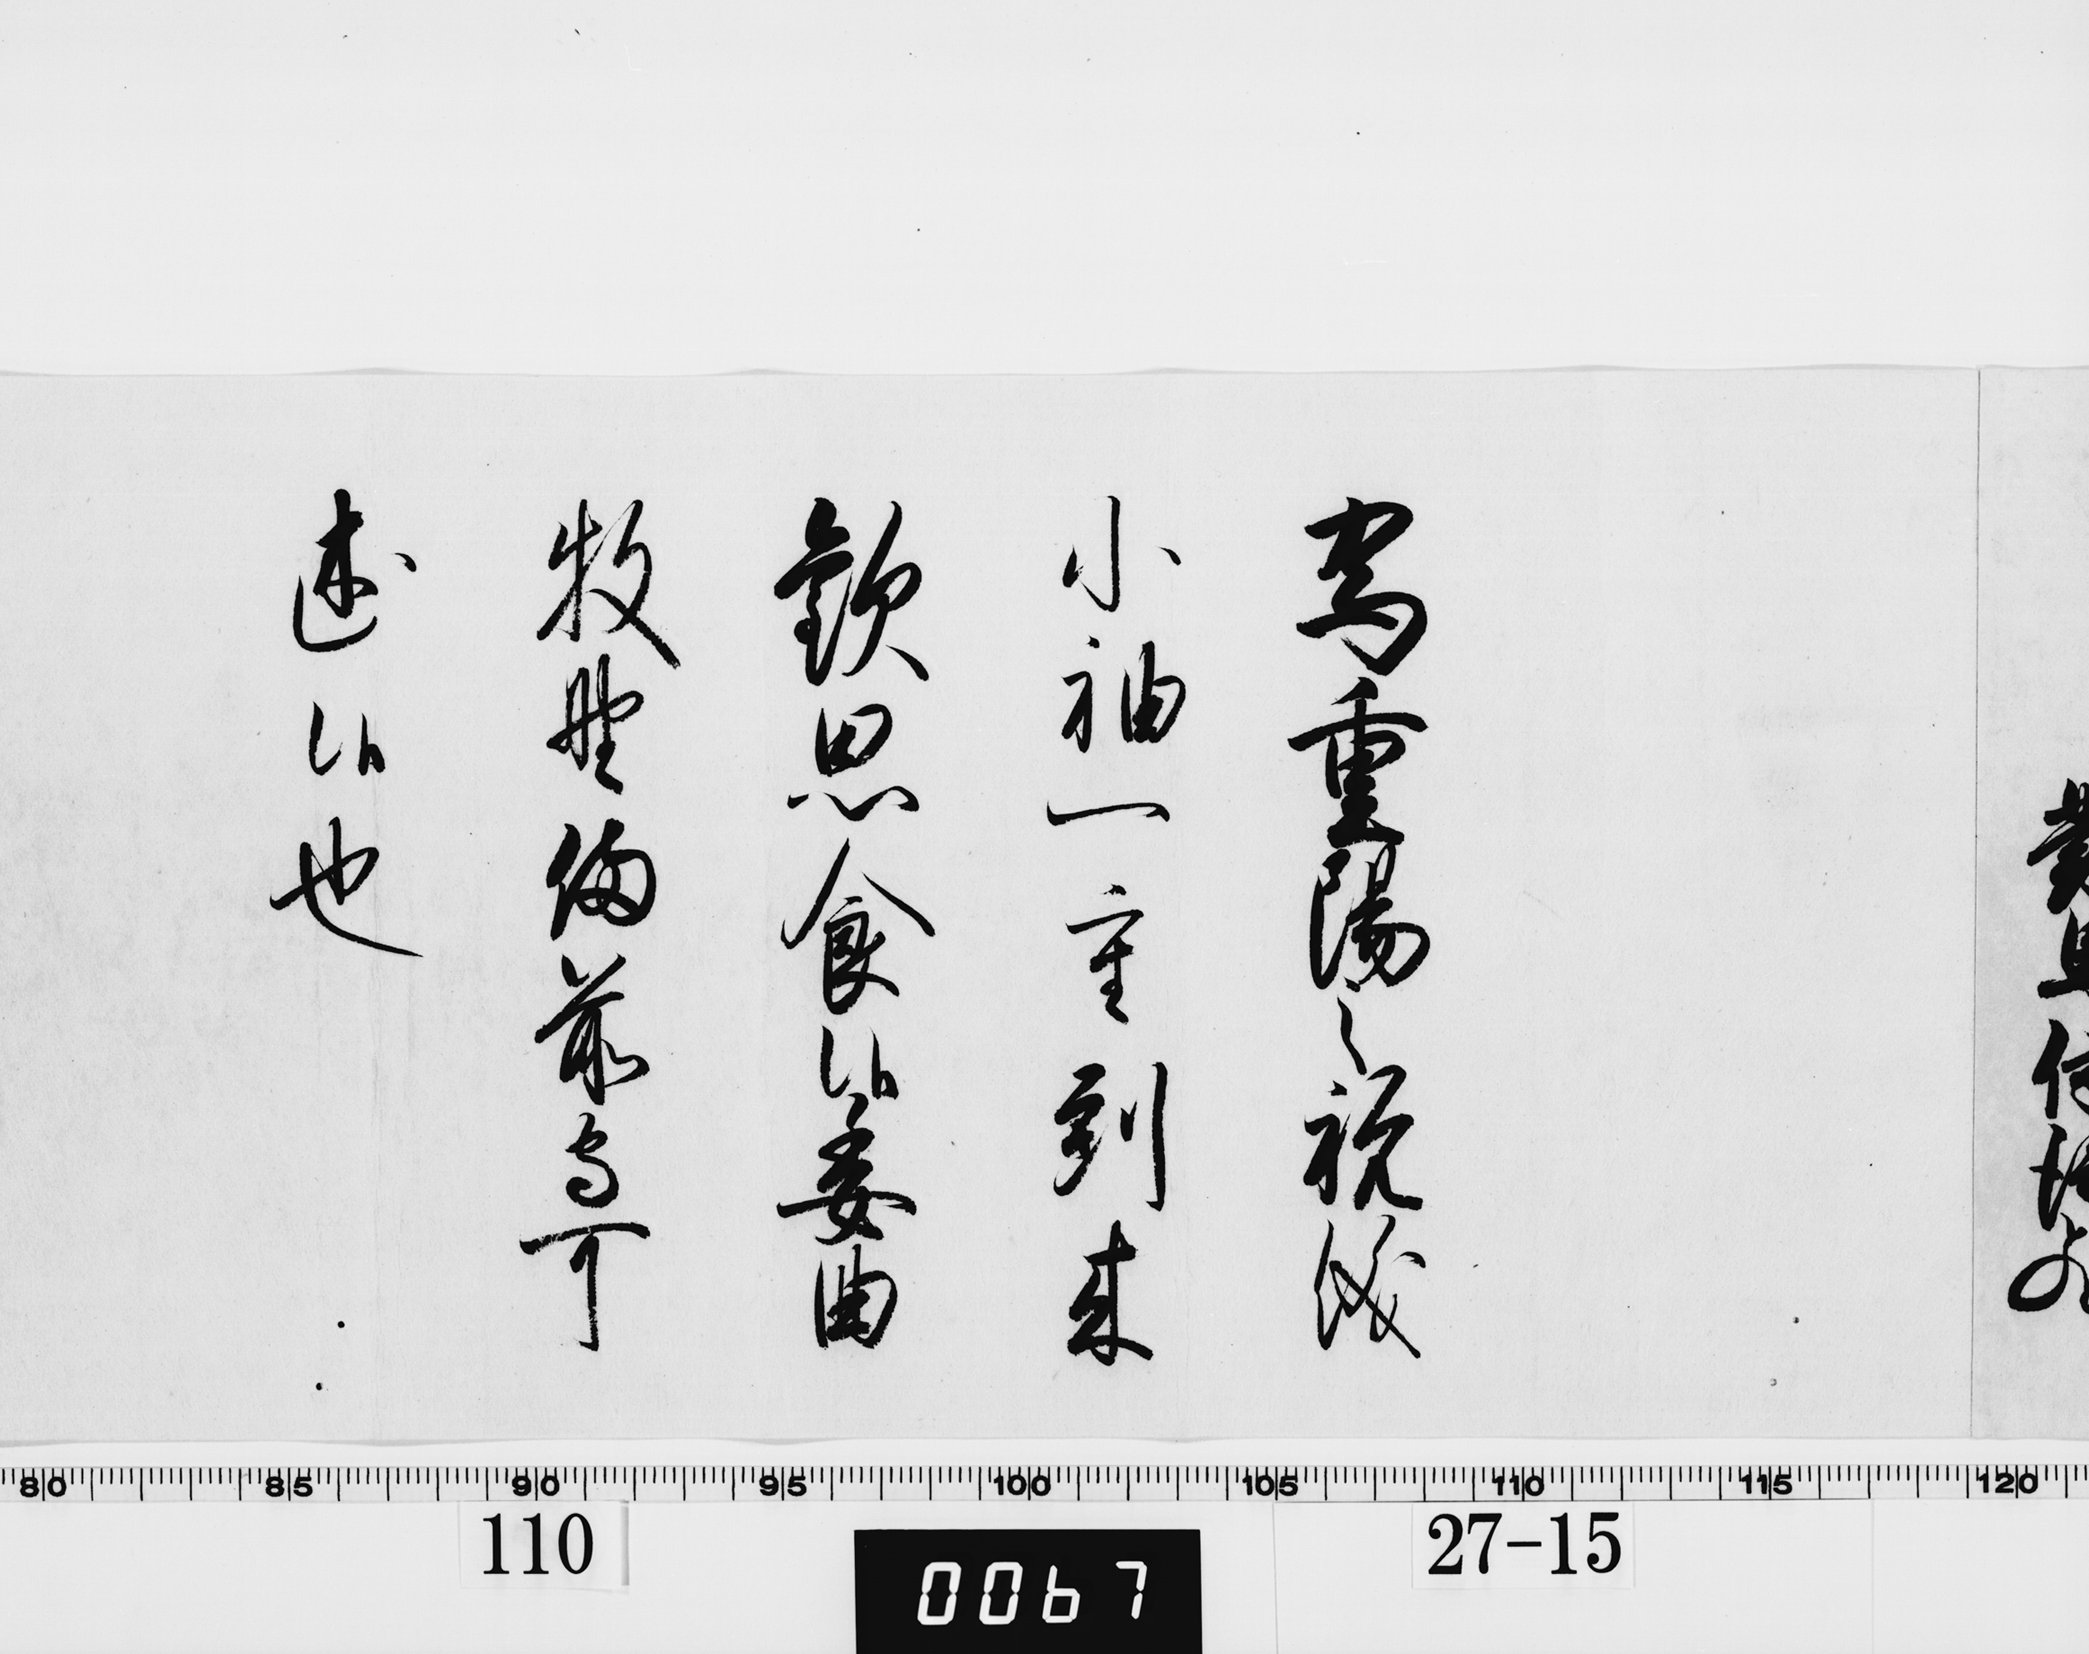 為重陽之祝儀
小袖一重到来
歓思食候委曲
牧野備前守可
述候也
80 85 90 95 100 105 110 115 120
110
27-15
0067